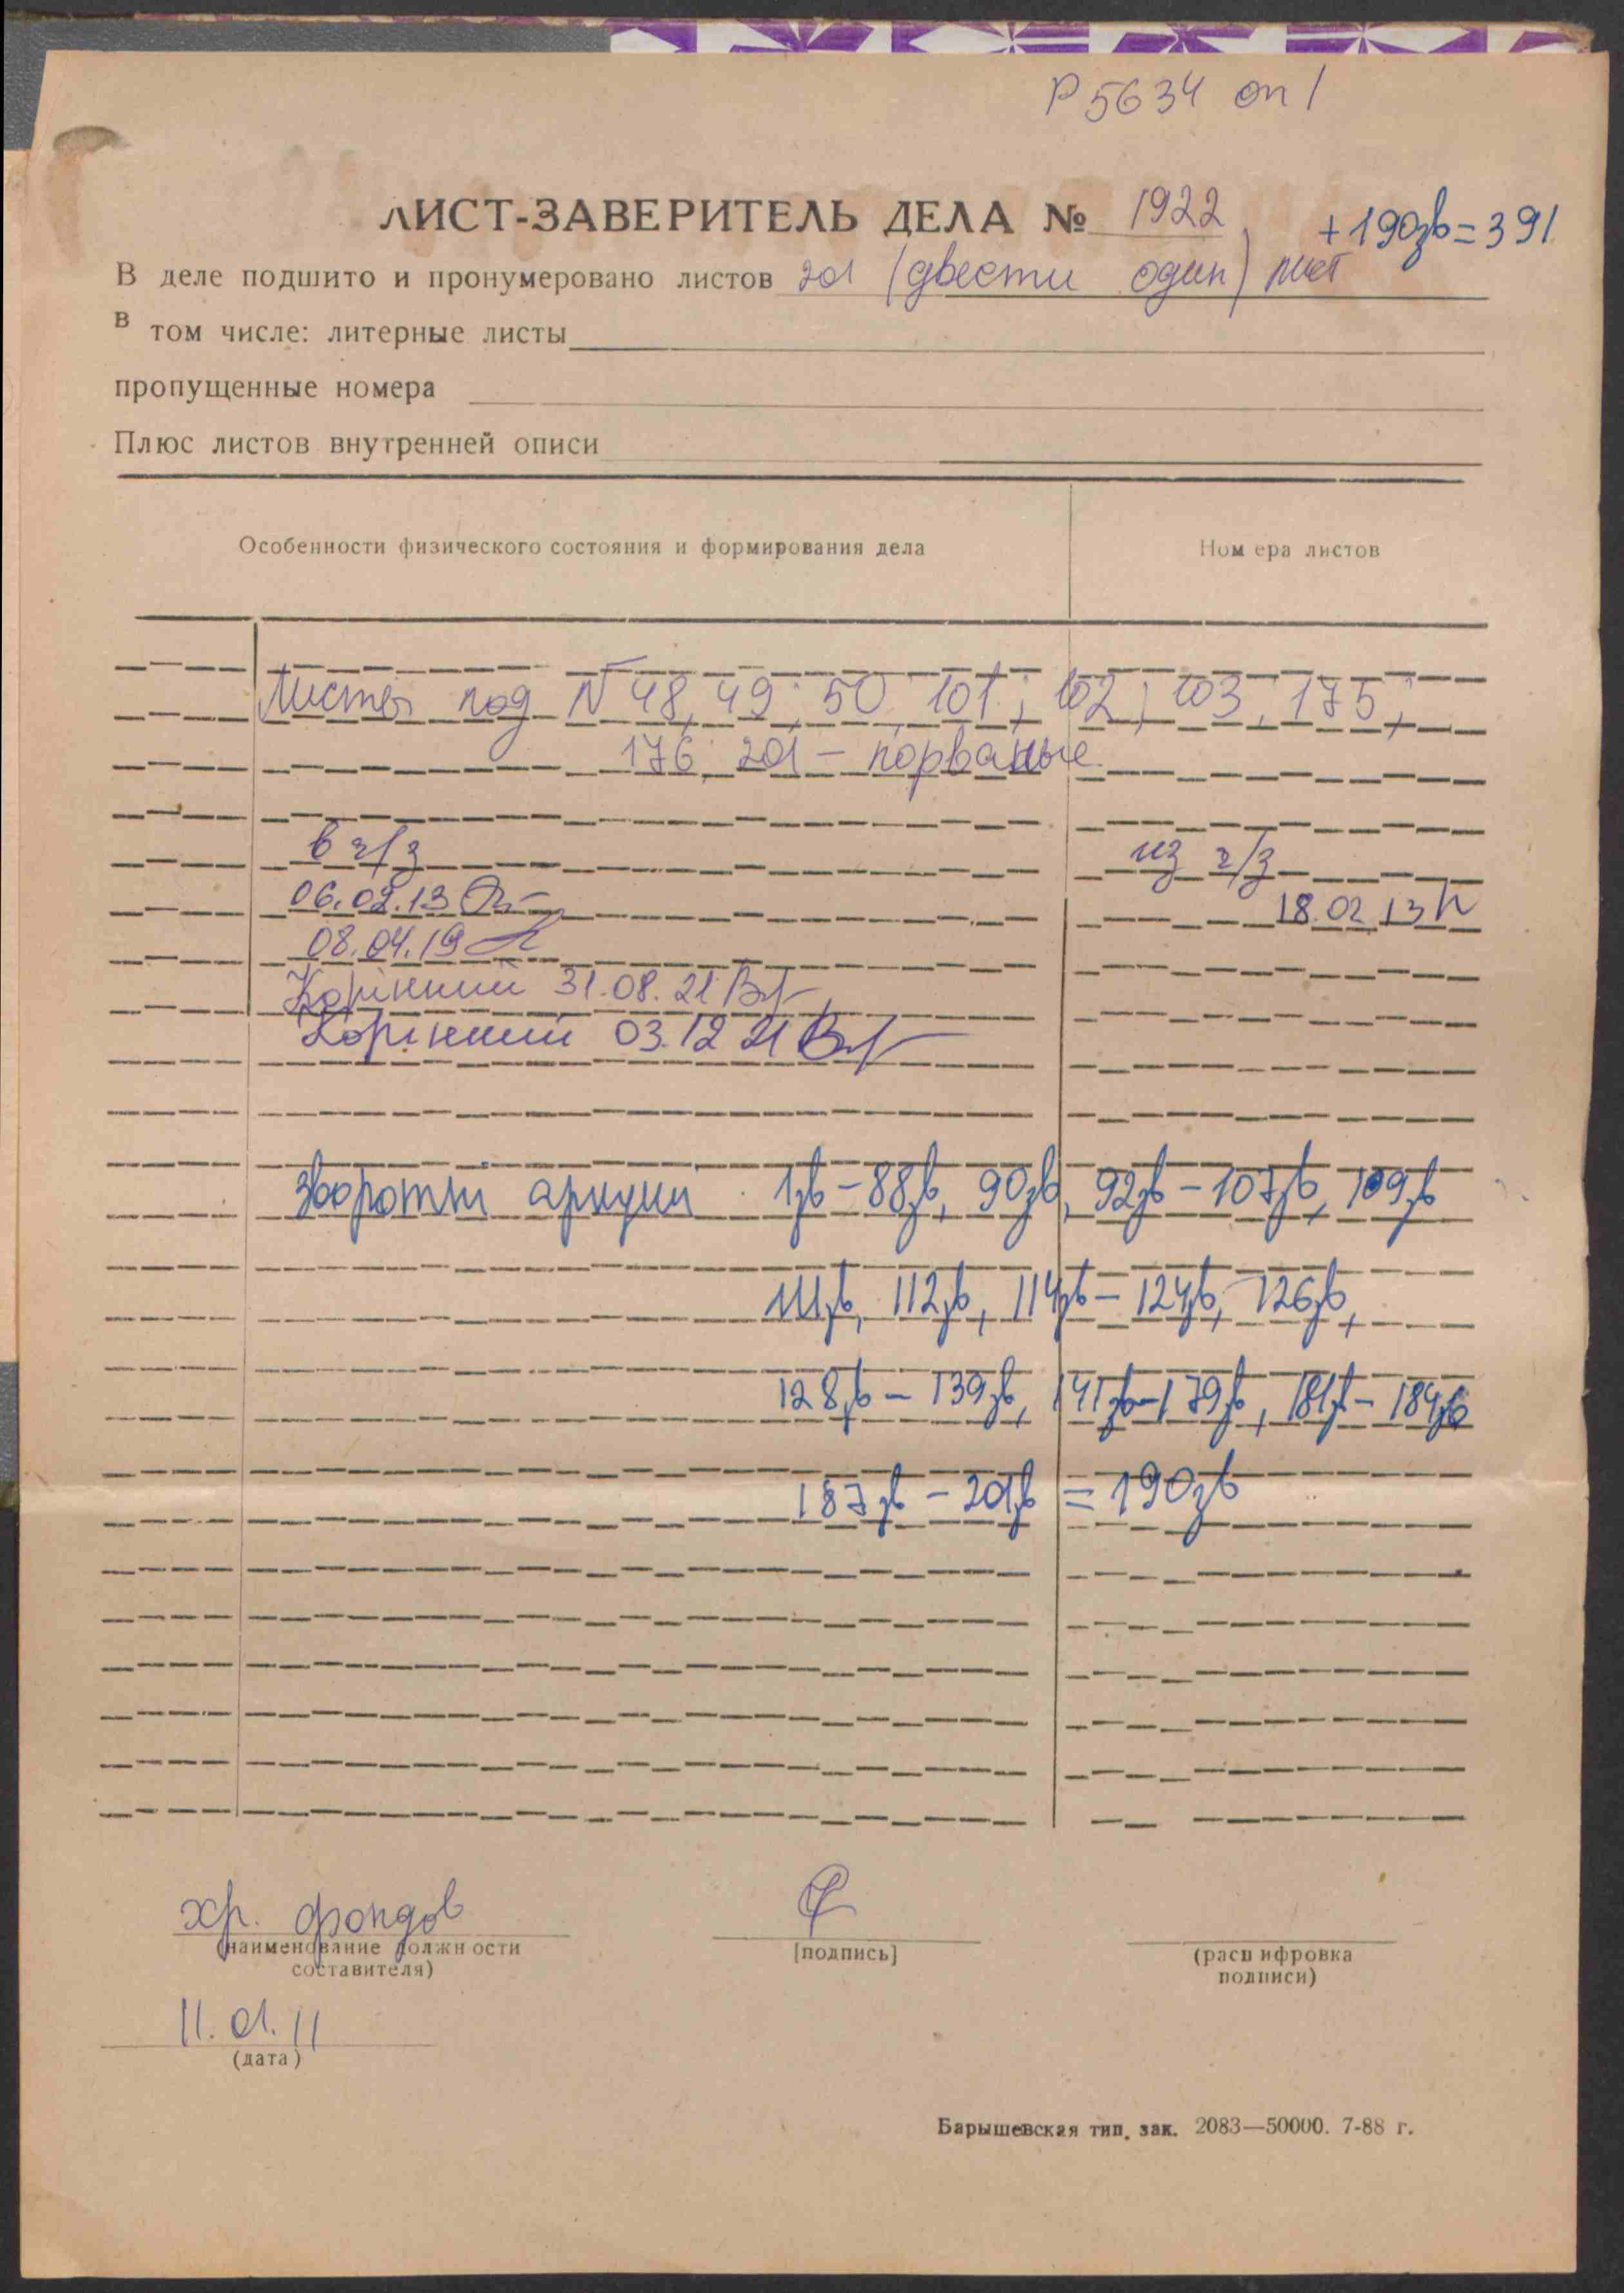 Р 5634 оп 1
ЛИСТ-ЗАВЕРИТЕЛЬ ДЕЛА № 1922
+190зв=391
В деле подшито и пронумеровано листов 201 (двести один) лист
в том числе: литерные листы
пропущенные номера
Плюс листов внутренней описи
Особенности физического состояния и формирования дела
Номера листов
Листы под N 48, 49, 50, 101, 102, 103, 175,
176, 201 – порваные
в ч/з
из ч/з
06.02.13
18.02.13
08.04.19
Корінний 31.08.21
Корінний 03.12 21
Зворотні аркуші 1зв – 88зв, 90зв, 92зв – 107зв, 109зв
111зв, 112зв, 114зв – 124зв, 126зв,
128зв – 139зв, 141зв – 179зв, 181зв – 184зв
187зв – 201зв = 190зв
хр. фондов
(наименование должности
составителя)
[подпись]
(расшифровка
подписи)
11.01.11
(дата)
Барышевская тип. зак. 2083—50000. 7-88 г.